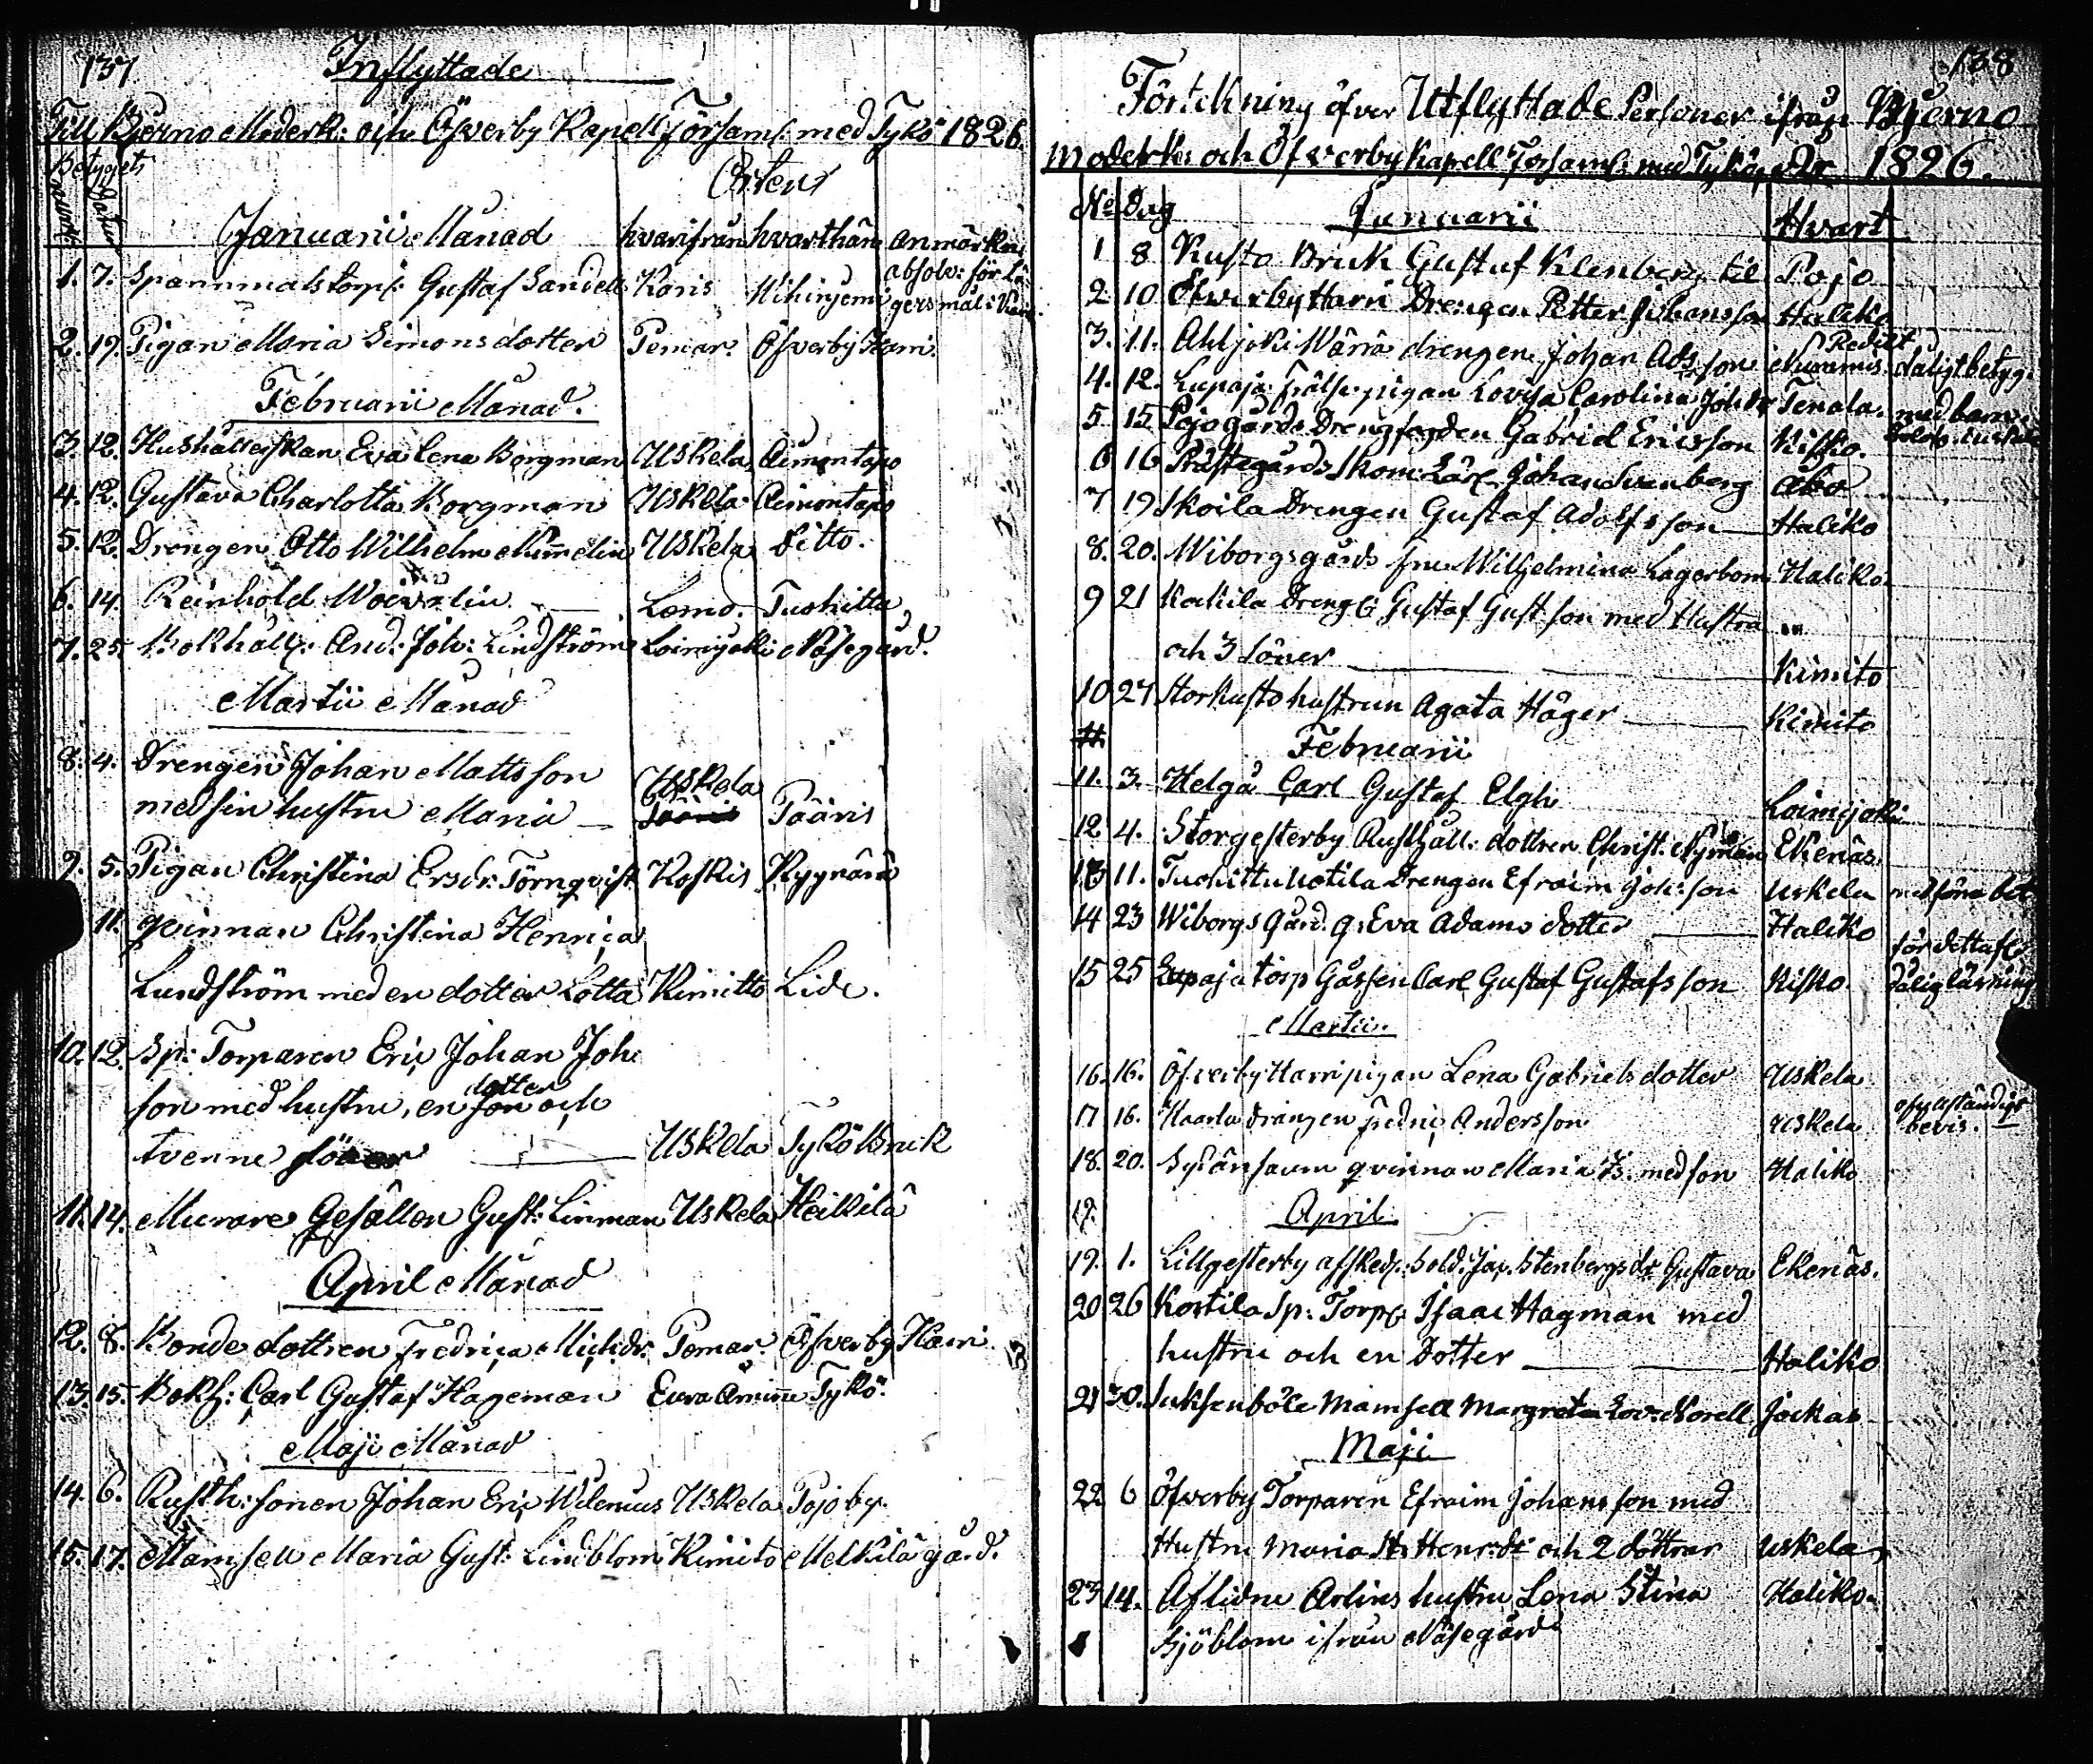 137
Inflyttade
Till Bjerno Moderk: och Öfverby Kapell församl: med Tykö 1826.
Betygets
Datum
Orten
Januarii Månad hvarifrån hvarthän Anmärkn:
1. 7. Spannmålstorp: Gustaf Sandell Karis absolv: för Lä-
gersmål i
2. 19. Pigan Maria Simonsdotter Pemar. Öfverby Harri
Februarii Månad.
3. 12. Hushållerskan Eva Lena Borgman Uskela Aimontapo
4. 12. Gustava Charlotta Borgman Uskela Aimontapo
5. 12. Drengen Otto Wilhelm Uskela Ditto.
6. 14. Reinhold Lomo. Tuohittu
7. 25. Bokhåll: And: Joh: Lindström Loimijoki Näsegård.
Martii Månad
8. 4. Drengen Johan Mattsson
med sin hustru Maria Uskela Pääris
9. 5. Pigan Christina Ersdr: Törnqvist Koskis
11. qvinnan Christina Henrica
Lundström med en dotter Lotta Kimitto Lide.
10. 12. Sp: Torparen Eric Johan Joh:
son med hustru, en dotter och
tvenne söner Uskela Tykö Bruk
11. 14. Murare Gesällen Gust: Linman Uskela Heikilä
April Månad
12. 8. Bonde dottren Fredrica Mich:dr: Pemar. Öfverby Harri.
13. 15. Bokh: Carl Gustaf Hageman Eura Tykö.
Maji Månad
14. 6. Rusth: sonen Johan Eric Wilenius Uskela Pojo by.
15. 17. Mamsell Maria Gust: Lindblom Kimito Melkilä gård.
138
Förtekning öfver Utflyttade Personer ifrån Bjerno
Moderk: och Öfverby Kapell Församl: med Tykö, År 1826.
No Dag Januarii Hvart
1 8 Kusto Bruk Gustaf Klenberg til Pojo
2 10 Öfverby Harri Drengen Petter Johansson Haliko
3. 11. Ahljoki Wärrä drengen Johan Ads:son Nummis. dåligt betyg.
4. 12. Lupaja frälse pigan Lovisa Carolina Joh:dr Tenala. med barn.
5 15 Pojogårds Drengfogden Gabriel Ericsson Kisko.
6 16 Prästegårds Skom: Lärl: Johan Svenberg Åbo
7 19 Skoila Drengen Gustaf Adolfsson Haliko
8. 20. Wiborgsgårds fru Wilhelmina Lagerbom Haliko.
9 21 Kokila Drengen Gustaf Gust:son med Hustru
och 3 söner Kimito
10 27 Storkusto hustrun Agata Häger Kimito
Februarii
11. 3. Helgå Carl Gustaf Elgh Loimijoki
12 4. Storgesterby Rusthåll: dottren Christ: Nyman Ekenäs.
13 11. Tuohittu Uotila Drengen Efraim Joh:son Uskela
14 23 Wiborgs Gård. q: Eva Adams dotter Haliko
15 25 Lupaja torp Gåssen Carl Gustaf Gustafsson Kisko. dålig läsning
Martii.
16. 16. Öfverby Harri pigan Lena Gabriels dotter Uskela
17 16. Kaarla drängen Fredric Andersson Uskela ofullständigt
bevis.
18. 20. qvinnan Maria Is: med son Haliko
19. April
19. 1. Lillgesterby afsked: Sold: Jac. Stenbergs dr Gustava Ekenäs.
20 26 Kortila Sp: Torp: Isaac Hagman med
hustru och en Dotter Haliko
21 30. Suksenböle Mamsell Margreta Lov: Norell Jockas
Maji
22 6 Öfverby Torparen Efraim Johansson med
Hustru Maria St: Henr:dr och 2 döttrar Uskela
23 14. Aflidne Arlins hustru Lena Stina Haliko.
Sjöblom ifrån Näsegård